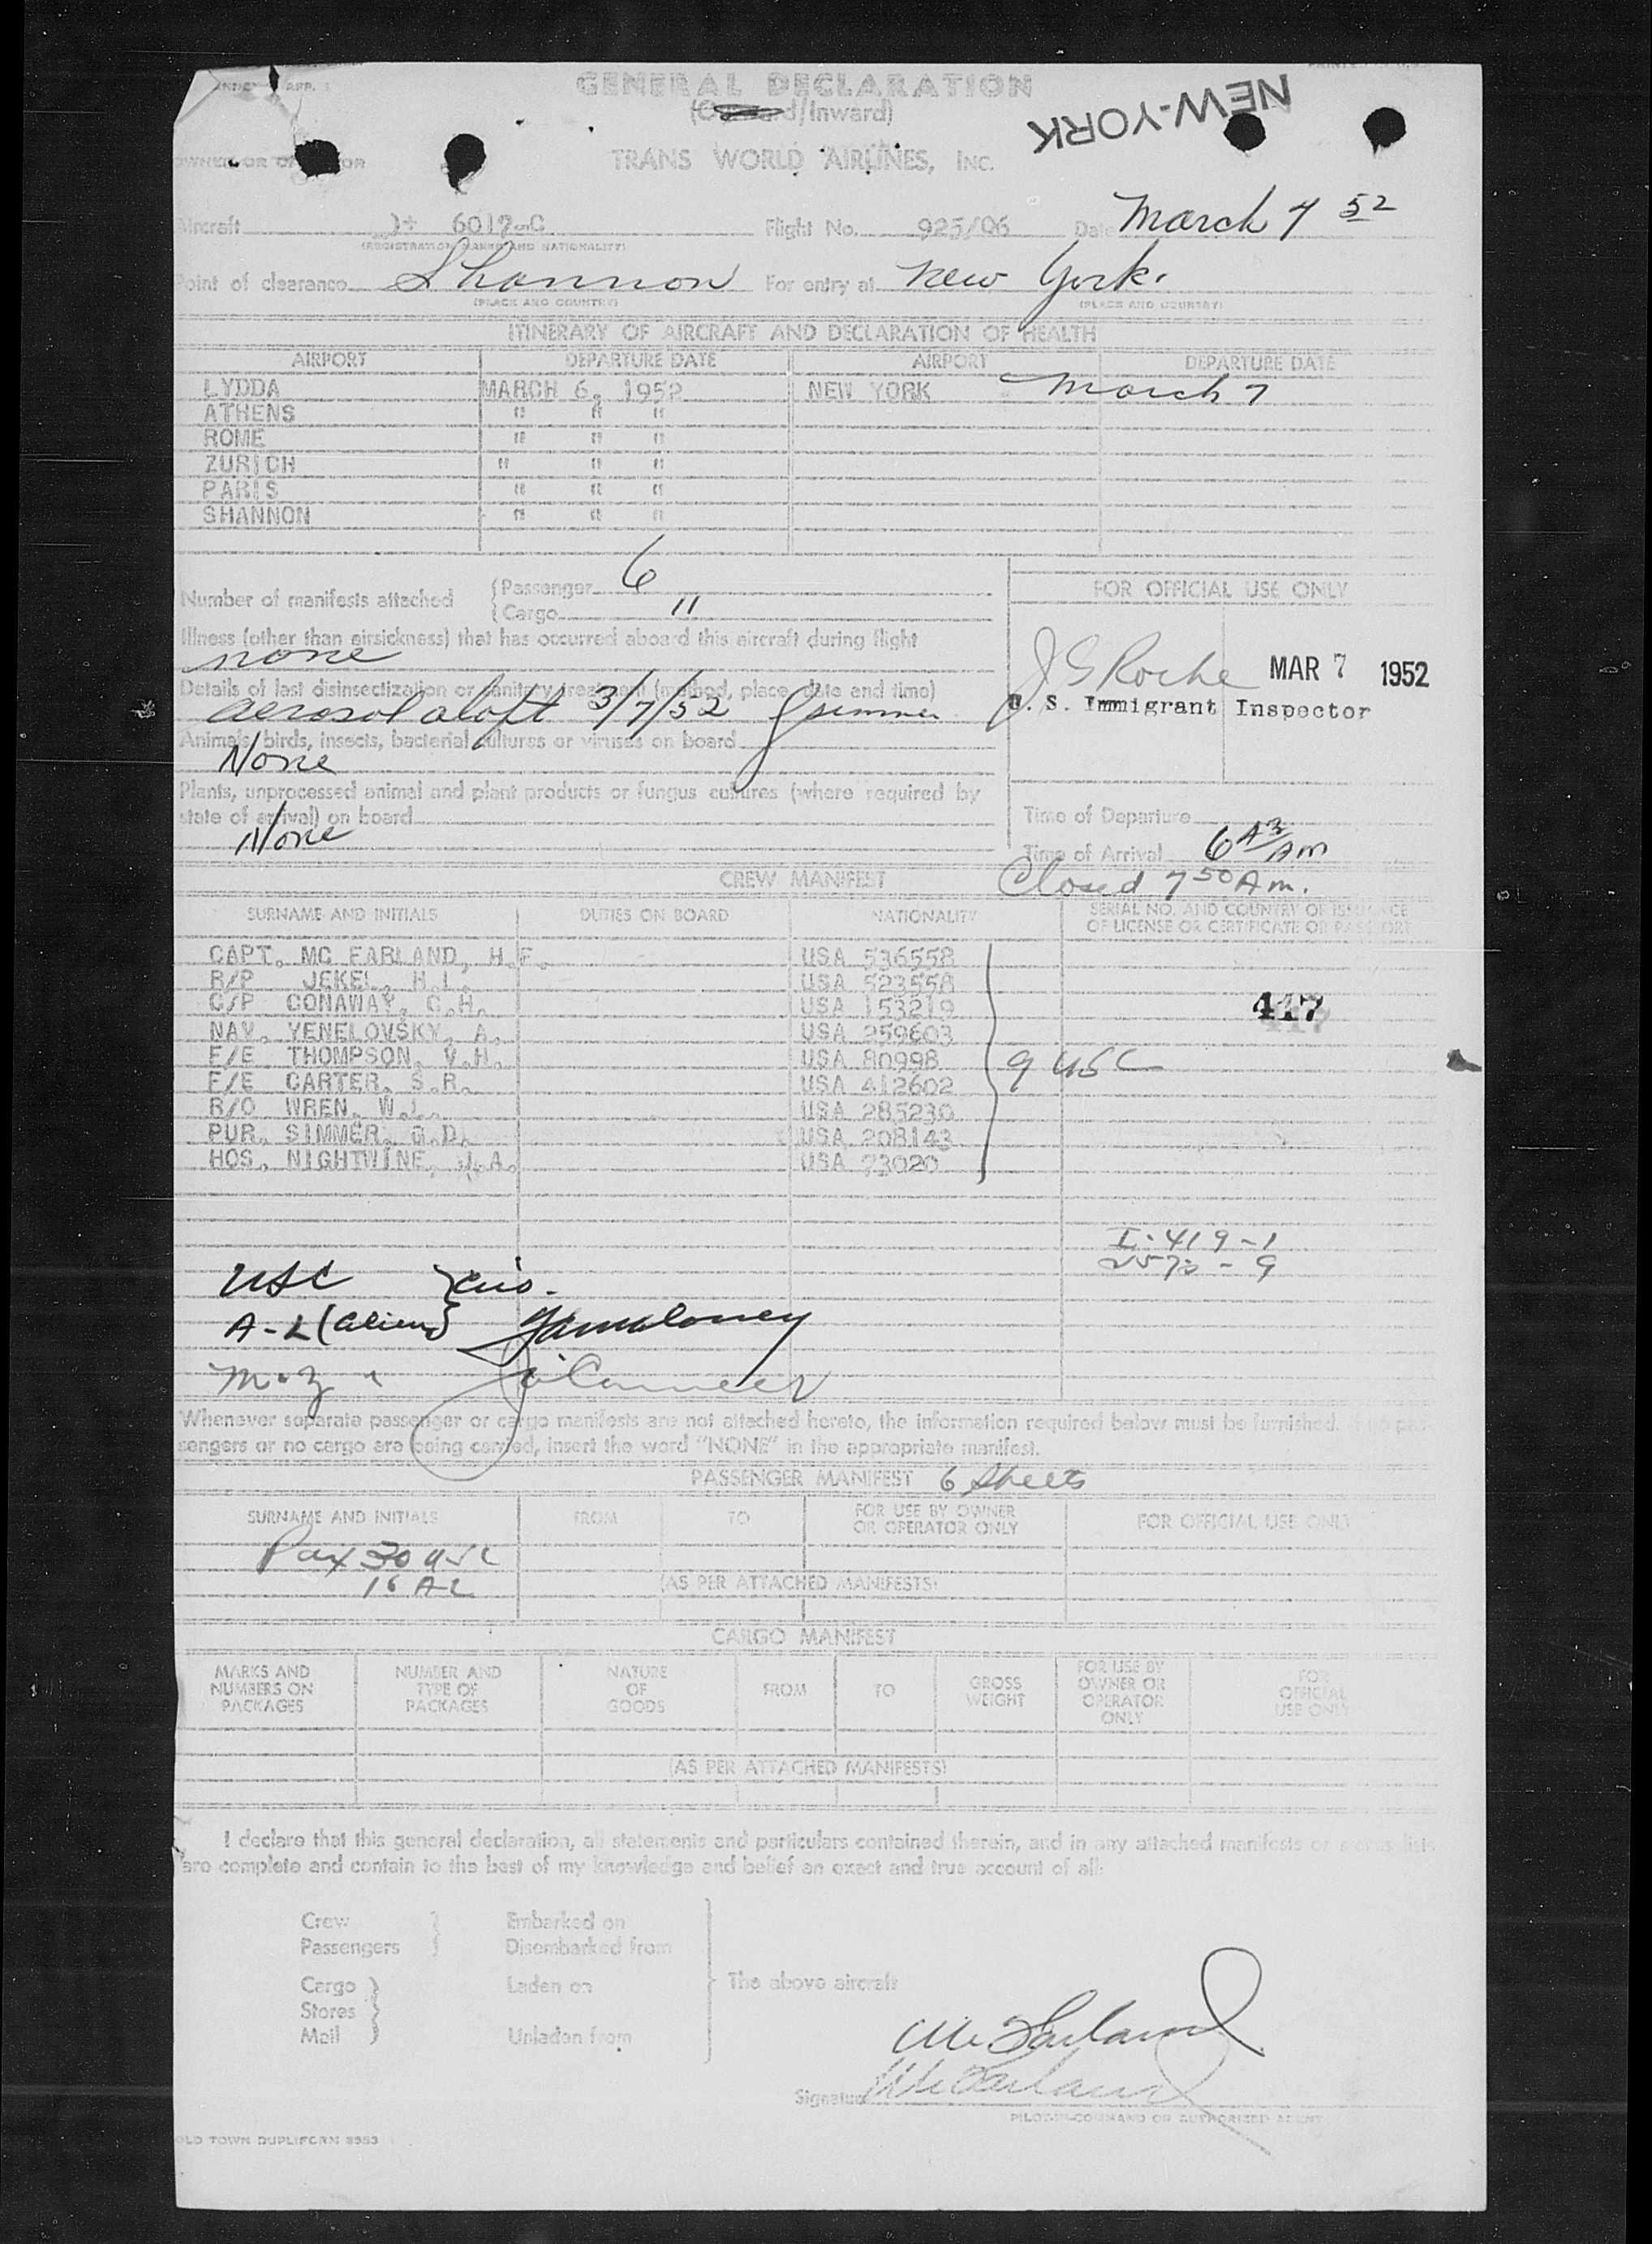 GENERAL DECLARATION
NEW-YORK
/Inward)
TRANS WORLD AIRLINES, INC.
Aircraft 6017-C Flight No. 925/06 Date March 7 52
(REGISTRATION MARKS AND NATIONALITY)
Point of clearance Shannon For entry at New York.
(PLACE AND COUNTRY) (PLACE AND COUNTRY)
ITINERARY OF AIRCRAFT AND DECLARATION OF HEALTH
AIRPORT DEPARTURE DATE AIRPORT DEPARTURE DATE
LYDDA MARCH 6, 1952 NEW YORK March 7
ATHENS " " "
ROME " " "
ZURICH " " "
PARIS " " "
SHANNON " " "
Number of manifests attached
Passenger 6
Cargo "
FOR OFFICIAL USE ONLY
Illness (other than airsickness) that has occurred aboard this aircraft during flight
none
J G Roche MAR 7 1952
U. S. Immigrant Inspector
Details of last disinsectization or sanitary treatment (method, place, date and time)
aerosol aloft 3/7/52 G simmer
Animals, birds, insects, bacterial cultures or viruses on board
None
Plants, unprocessed animal and plant products or fungus cultures (where required by
state of arrival) on board
None
Time of Departure
Time of Arrival 6 43 AM
Closed 7 50 Am.
CREW MANIFEST
SURNAME AND INITIALS DUTIES ON BOARD NATIONALITY SERIAL NO. AND COUNTRY OF ISSUANCE
OF LICENSE OR CERTIFICATE OR PASSPORT
CAPT. MC FARLAND, H.F. USA 536558
R/P JEKEL, H.L. USA 523558
C/P CONAWAY, C.H. USA 153219
417
NAV. YENELOVSKY, A. USA 259603
F/E THOMPSON, V.H. USA 80998
9 USC
F/E CARTER, S.R. USA 412602
R/O WREN, W.L. USA 285230
PUR. SIMMER, G.D. USA 208143
HOS. NIGHTWINE, J.A. USA 73020
I-419-1
257 - 9
USC
A-L (alien)
Whenever separate passenger or cargo manifests are not attached hereto, the information required below must be furnished. If no pas-
sengers or no cargo are being carried, insert the word "NONE" in the appropriate manifest.
PASSENGER MANIFEST 6 Sheets
SURNAME AND INITIALS FROM TO FOR USE BY OWNER
OR OPERATOR ONLY FOR OFFICIAL USE ONLY
Pax 30 USC
16 A-L
(AS PER ATTACHED MANIFESTS)
CARGO MANIFEST
MARKS AND
NUMBERS ON
PACKAGES
NUMBER AND
TYPE OF
PACKAGES
NATURE
OF
GOODS
FROM
TO
GROSS
WEIGHT
FOR USE BY
OWNER OR
OPERATOR
ONLY
FOR
OFFICIAL
USE ONLY
(AS PER ATTACHED MANIFESTS)
I declare that this general declaration, all statements and particulars contained therein, and in any attached manifests or stores lists
are complete and contain to the best of my knowledge and belief an exact and true account of all:
Crew Embarked on
Passengers Disembarked from
Cargo Laden on The above aircraft
Stores
Mail Unladen from
McFarland
Signature McFarland
PILOT-IN-COMMAND OR AUTHORIZED AGENT
OLD TOWN DUPLIFORM 8553